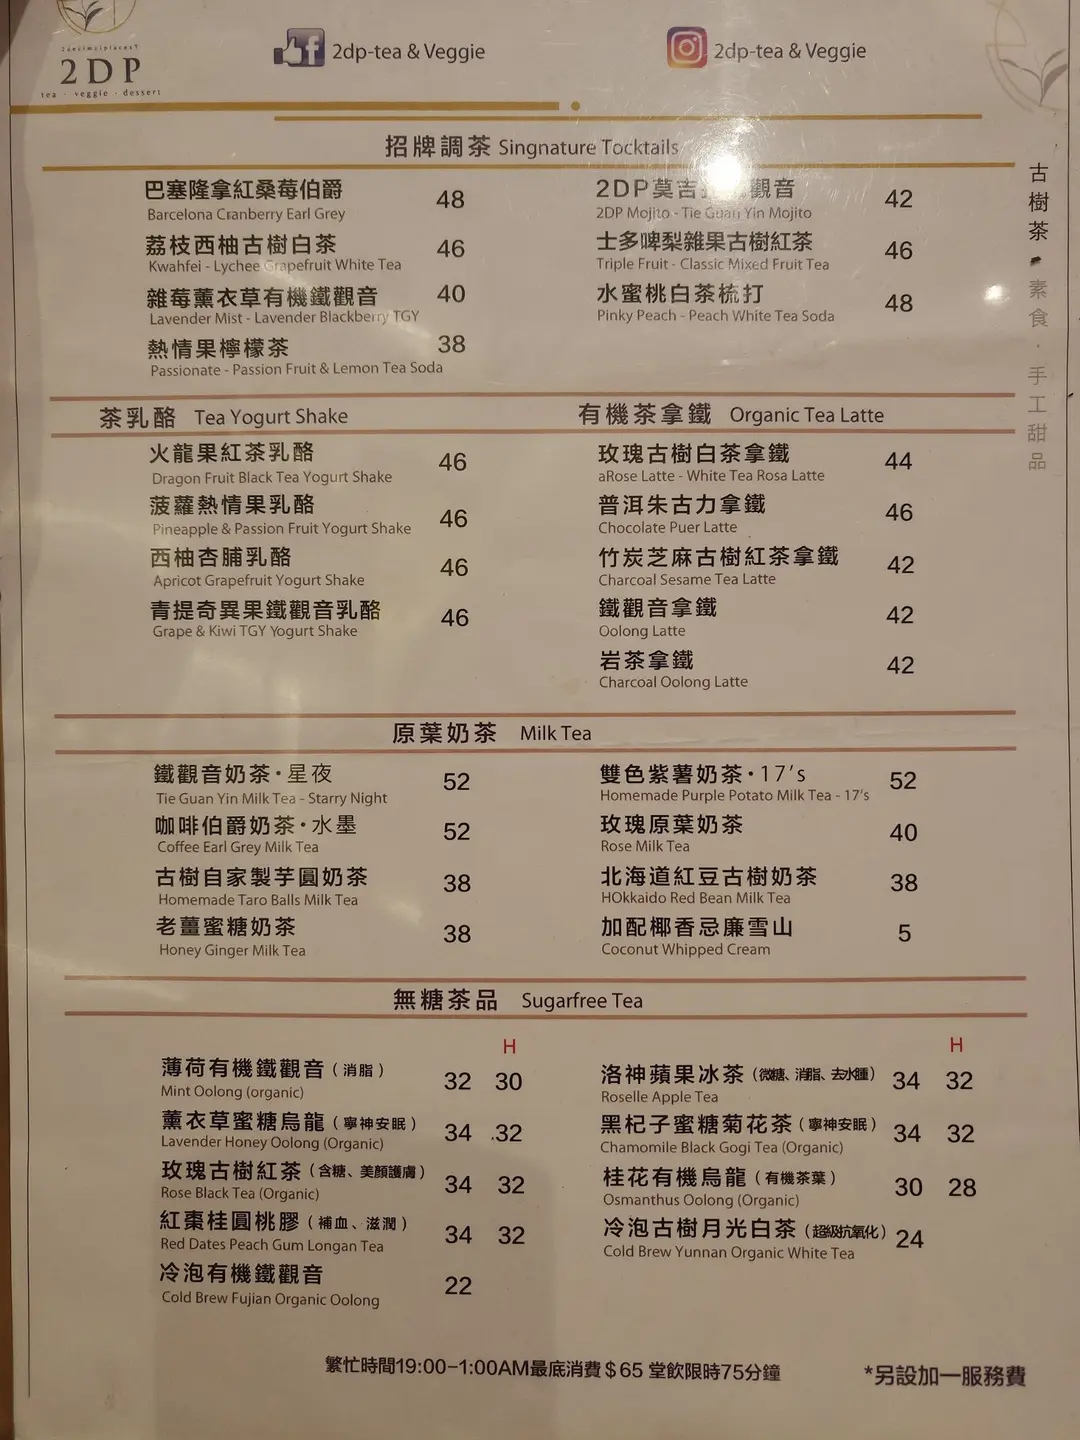 2decimalplaces?
2DP
tea · veggie · dessert
2dp-tea & Veggie
2dp-tea & Veggie
古樹茶 素食 · 手工甜品
招牌調茶 Singnature Tocktails
巴塞隆拿紅桑莓伯爵 48
Barcelona Cranberry Earl Grey
荔枝西柚古樹白茶 46
Kwahfei - Lychee Grapefruit White Tea
雜莓薰衣草有機鐵觀音 40
Lavender Mist - Lavender Blackberry TGY
熱情果檸檬茶 38
Passionate - Passion Fruit & Lemon Tea Soda
2DP莫吉 觀音 42
2DP Mojito - Tie Guan Yin Mojito
士多啤梨雜果古樹紅茶 46
Triple Fruit - Classic Mixed Fruit Tea
水蜜桃白茶梳打 48
Pinky Peach - Peach White Tea Soda
茶乳酪 Tea Yogurt Shake
火龍果紅茶乳酪 46
Dragon Fruit Black Tea Yogurt Shake
菠蘿熱情果乳酪 46
Pineapple & Passion Fruit Yogurt Shake
西柚杏脯乳酪 46
Apricot Grapefruit Yogurt Shake
青提奇異果鐵觀音乳酪 46
Grape & Kiwi TGY Yogurt Shake
有機茶拿鐵 Organic Tea Latte
玫瑰古樹白茶拿鐵 44
aRose Latte - White Tea Rosa Latte
普洱朱古力拿鐵 46
Chocolate Puer Latte
竹炭芝麻古樹紅茶拿鐵 42
Charcoal Sesame Tea Latte
鐵觀音拿鐵 42
Oolong Latte
岩茶拿鐵 42
Charcoal Oolong Latte
原葉奶茶 Milk Tea
鐵觀音奶茶·星夜 52
Tie Guan Yin Milk Tea - Starry Night
咖啡伯爵奶茶·水墨 52
Coffee Earl Grey Milk Tea
古樹自家製芋圓奶茶 38
Homemade Taro Balls Milk Tea
老薑蜜糖奶茶 38
Honey Ginger Milk Tea
雙色紫薯奶茶·17's 52
Homemade Purple Potato Milk Tea - 17's
玫瑰原葉奶茶 40
Rose Milk Tea
北海道紅豆古樹奶茶 38
HOkkaido Red Bean Milk Tea
加配椰香忌廉雪山 5
Coconut Whipped Cream
無糖茶品 Sugarfree Tea
H
薄荷有機鐵觀音（消脂） 32 30
Mint Oolong (organic)
薰衣草蜜糖烏龍（寧神安眠） 34 32
Lavender Honey Oolong (Organic)
玫瑰古樹紅茶（含糖、美顏護膚） 34 32
Rose Black Tea (Organic)
紅棗桂圓桃膠（補血、滋潤） 34 32
Red Dates Peach Gum Longan Tea
冷泡有機鐵觀音 22
Cold Brew Fujian Organic Oolong
H
洛神蘋果冰茶（微糖、消脂、去水腫） 34 32
Roselle Apple Tea
黑杞子蜜糖菊花茶（寧神安眠） 34 32
Chamomile Black Gogi Tea (Organic)
桂花有機烏龍（有機茶葉） 30 28
Osmanthus Oolong (Organic)
冷泡古樹月光白茶（超級抗氧化） 24
Cold Brew Yunnan Organic White Tea
繁忙時間19:00-1:00AM最底消費$65 堂飲限時75分鐘
*另設加一服務費